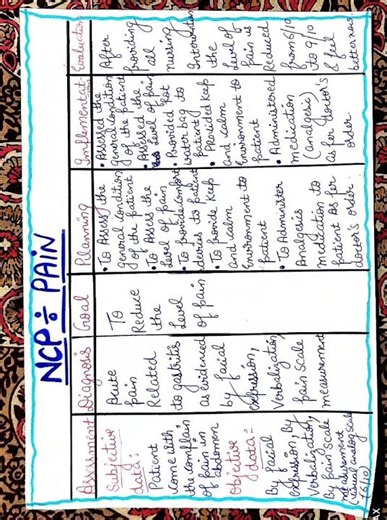 NCP ÷ PAIN
Assessment
Subjective
data:-
Patient
come with
the complain
of pain in
abdomen
Objective
data:-
By facial
expression, by
Verbalization,
by Pain Scale
measurement
visual analog scale
(6/10)
Diagnosis
Acute
pain
Related
to gastritis
as evidenced
by facial
expression,
Verbalization,
pain scale
measurement
Goal
To
Reduce
the
Level
of pain
Planning
• To Assess the
general condition
of the patient
• To Asses the
level of pain
• To provide comfort
devices to patient
• To provide keep
and calm
Environment to
patient
• To Administer
Analgesics
medication to
patient As per
doctor's order
Implementat
• Assessed the
general condition
of the patient
• Assessed the
level of pain
• Provided hot
water bag to
patient
• Provided keep
and calm
Environment to
patient
• Administered
medication
(analgesic)
as per doctor's
order
Evaluation
After
providing
all
nursing
Intervention
the
level of
pain is
Reduced
from 6/10
to 9/10
& feel
better now